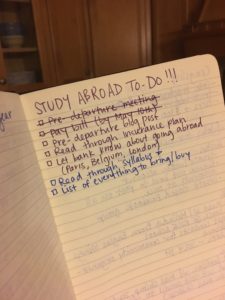 STUDY ABROAD TO-DO!!!
□ Pre-departure meeting
□ Pay bill (by May 15th)
□ Pre-departure blog post
□ Read through insurance plan
□ Let bank know about going abroad
(Paris, Belgium, London)
□ Read through syllabus +
□ List of everything to bring/buy